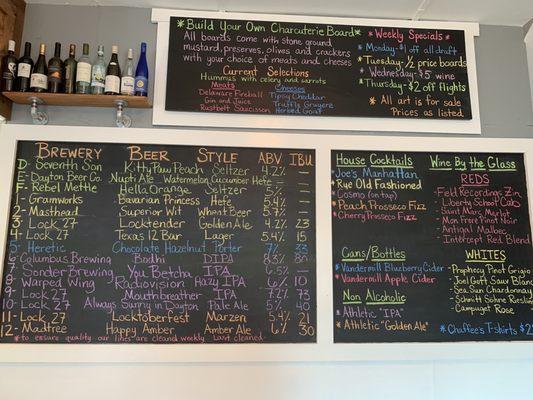 * Build Your Own Charcuterie Board *
All boards come with stone ground
mustard, preserves, olives and crackers
with your choice of meats and cheeses
Current Selections
Hummus with celery and carrots
Meats
Delaware Fireball
Gin and Juice
Rustbelt Saucisson
Cheeses
Tipsy Cheddar
Truffle Gruyere
Herbed Goat
* Weekly Specials *
* Monday- $1 off all draft
* Tuesday- 1/2 price boards
* Wednesday- $5 wine
* Thursday- $2 off flights
* All art is for sale.
Prices as listed
Brewery Beer Style ABV IBU
D- Seventh Son Kitty Paw Peach Seltzer 4.2% —
E- Dayton Beer Co. Watermelon Cucumber
F- Rebel Mettle Hella Orange Seltzer 5% —
1- Gramworks Bavarian Princess Hefe 5.4% —
2- Masthead Superior Wit Wheat Beer 5.7% —
3- Lock 27 Locktender Golden Ale 4.2% 23
4- Lock 27 Texas 12 Bar Lager 5.4% 15
5- Heretic Chocolate Hazelnut Porter 7% 23
6- Columbus Brewing Bodhi DIPA 8.3% 80
7- Sonder Brewing You Betcha IPA 6.5% —
8- Warped Wing Radiovision Hazy IPA 6% 10
9- Lock 27 Mouthbreather IPA 7.2% 73
10- Lock 27 Always Sunny in Dayton Pale Ale 5% 40
11- Lock 27 Locktoberfest Marzen 5.4% 21
12- Madtree Happy Amber Amber Ale 6% 30
* to ensure quality our lines are cleaned weekly Last cleaned
House Cocktails
* Joe's Manhattan
* Rye Old Fashioned
* Cosmo (on tap)
* Peach Prosseco Fizz
* Cherry Prosseco Fizz
Cans/Bottles
* Vandermill Blueberry Cider
* Vandermill Apple Cider
Non Alcoholic
* Athletic "IPA"
* Athletic "Golden Ale"
Wine By the Glass
REDS
- Field Recordings Zin
- Liberty School Cab
- Saint Marc Merlot
- Mon Frere Pinot Noir
- Antigal Malbec
- Intercept Red Blend
WHITES
- Prophecy Pinot Grigio
- Joel Gott Sauv Blanc
- Sea Sun Chardonnay
- Schmitt Sohne Riesling
- Campuget Rose
* Chaffee's T-shirts